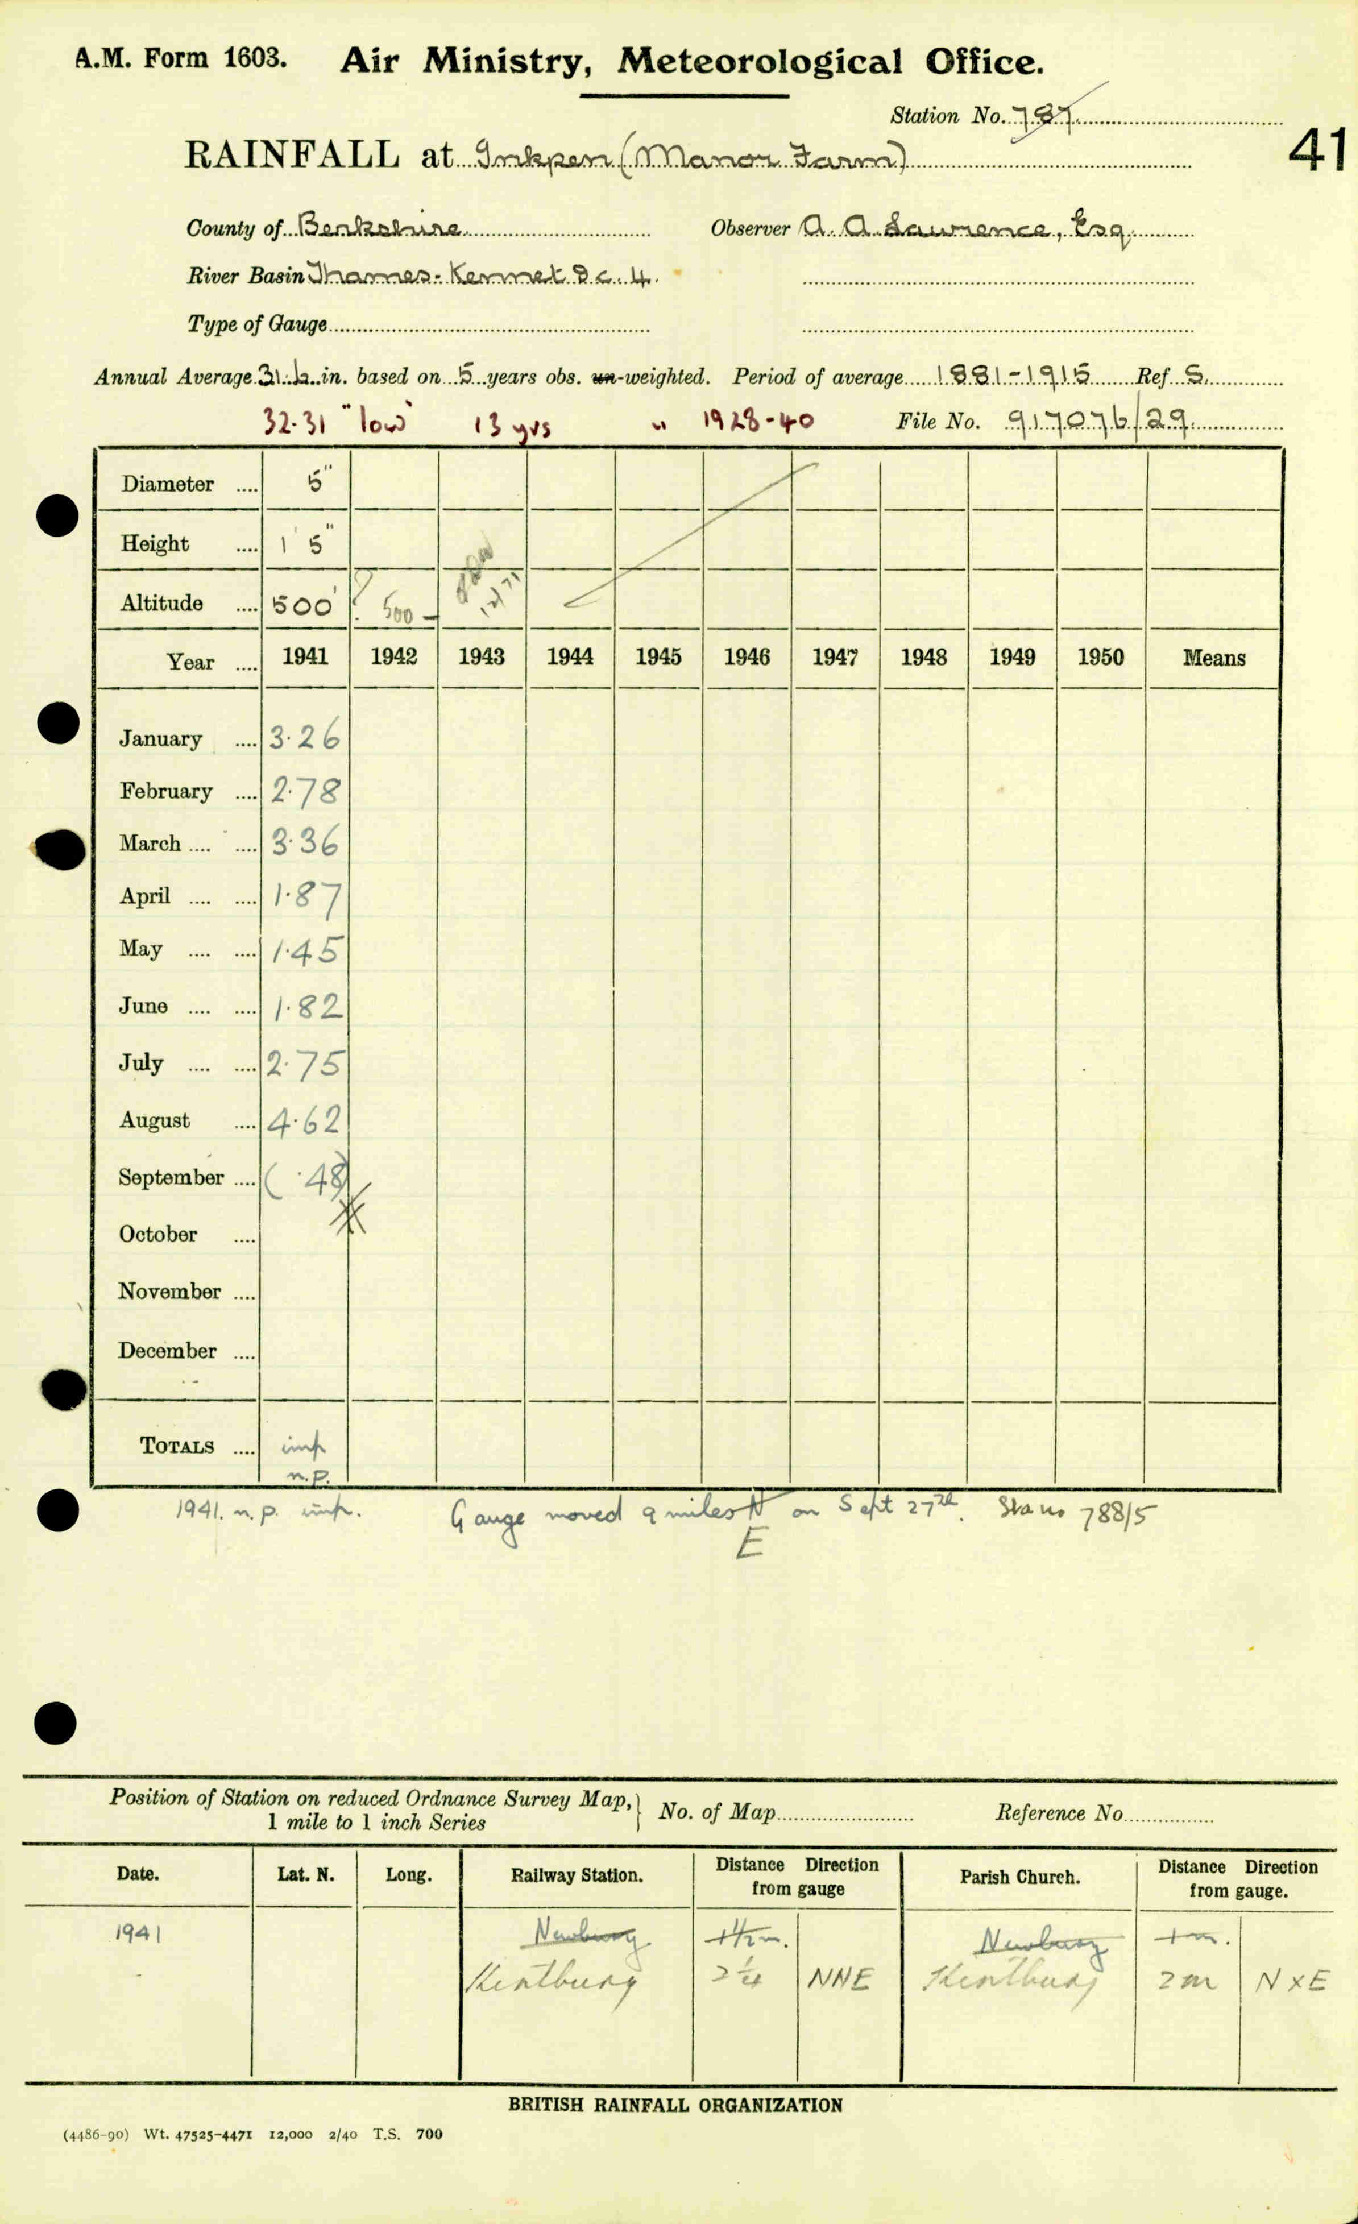 A.M. Form 1603. Air Ministry, Meteorological Office.
Station No. 787
41
RAINFALL at Inkpen (Manor Farm)
County of Berkshire Observer A. A. Lawrence, Esq.
River Basin Thames-Kennet &c. 4.
Type of Gauge
Annual Average 31.6 in. based on 5 years obs. un-weighted. Period of average 1881-1915 Ref S.
32.31 "low" 13 yrs " 1928-40 File No. 917076/29
Diameter .... 5"
Height .... 1' 5"
Altitude .... 500' ? 500 12/71
Year .... 1941 1942 1943 1944 1945 1946 1947 1948 1949 1950 Means
January .... 3.26
February .... 2.78
March .... .... 3.36
April .... .... 1.87
May .... .... 1.45
June .... .... 1.82
July .... .... 2.75
August .... 4.62
September .... ( .48)
October ....
November ....
December ....
TOTALS .... imp
n.p.
1941. n.p. imp. Gauge moved 9 miles N on Sept 27th. Sta no 788/5
E
Position of Station on reduced Ordnance Survey Map,} No. of Map Reference No
1 mile to 1 inch Series
Date. Lat. N. Long. Railway Station. Distance Direction from gauge Parish Church. Distance Direction from gauge.
1941 Newbury 1½ m. Newbury 1 m.
Kintbury 2¼ NNE Kintbury 2 m N x E
BRITISH RAINFALL ORGANIZATION
(4486-90) Wt. 47525-4471 12,000 2/40 T.S. 700